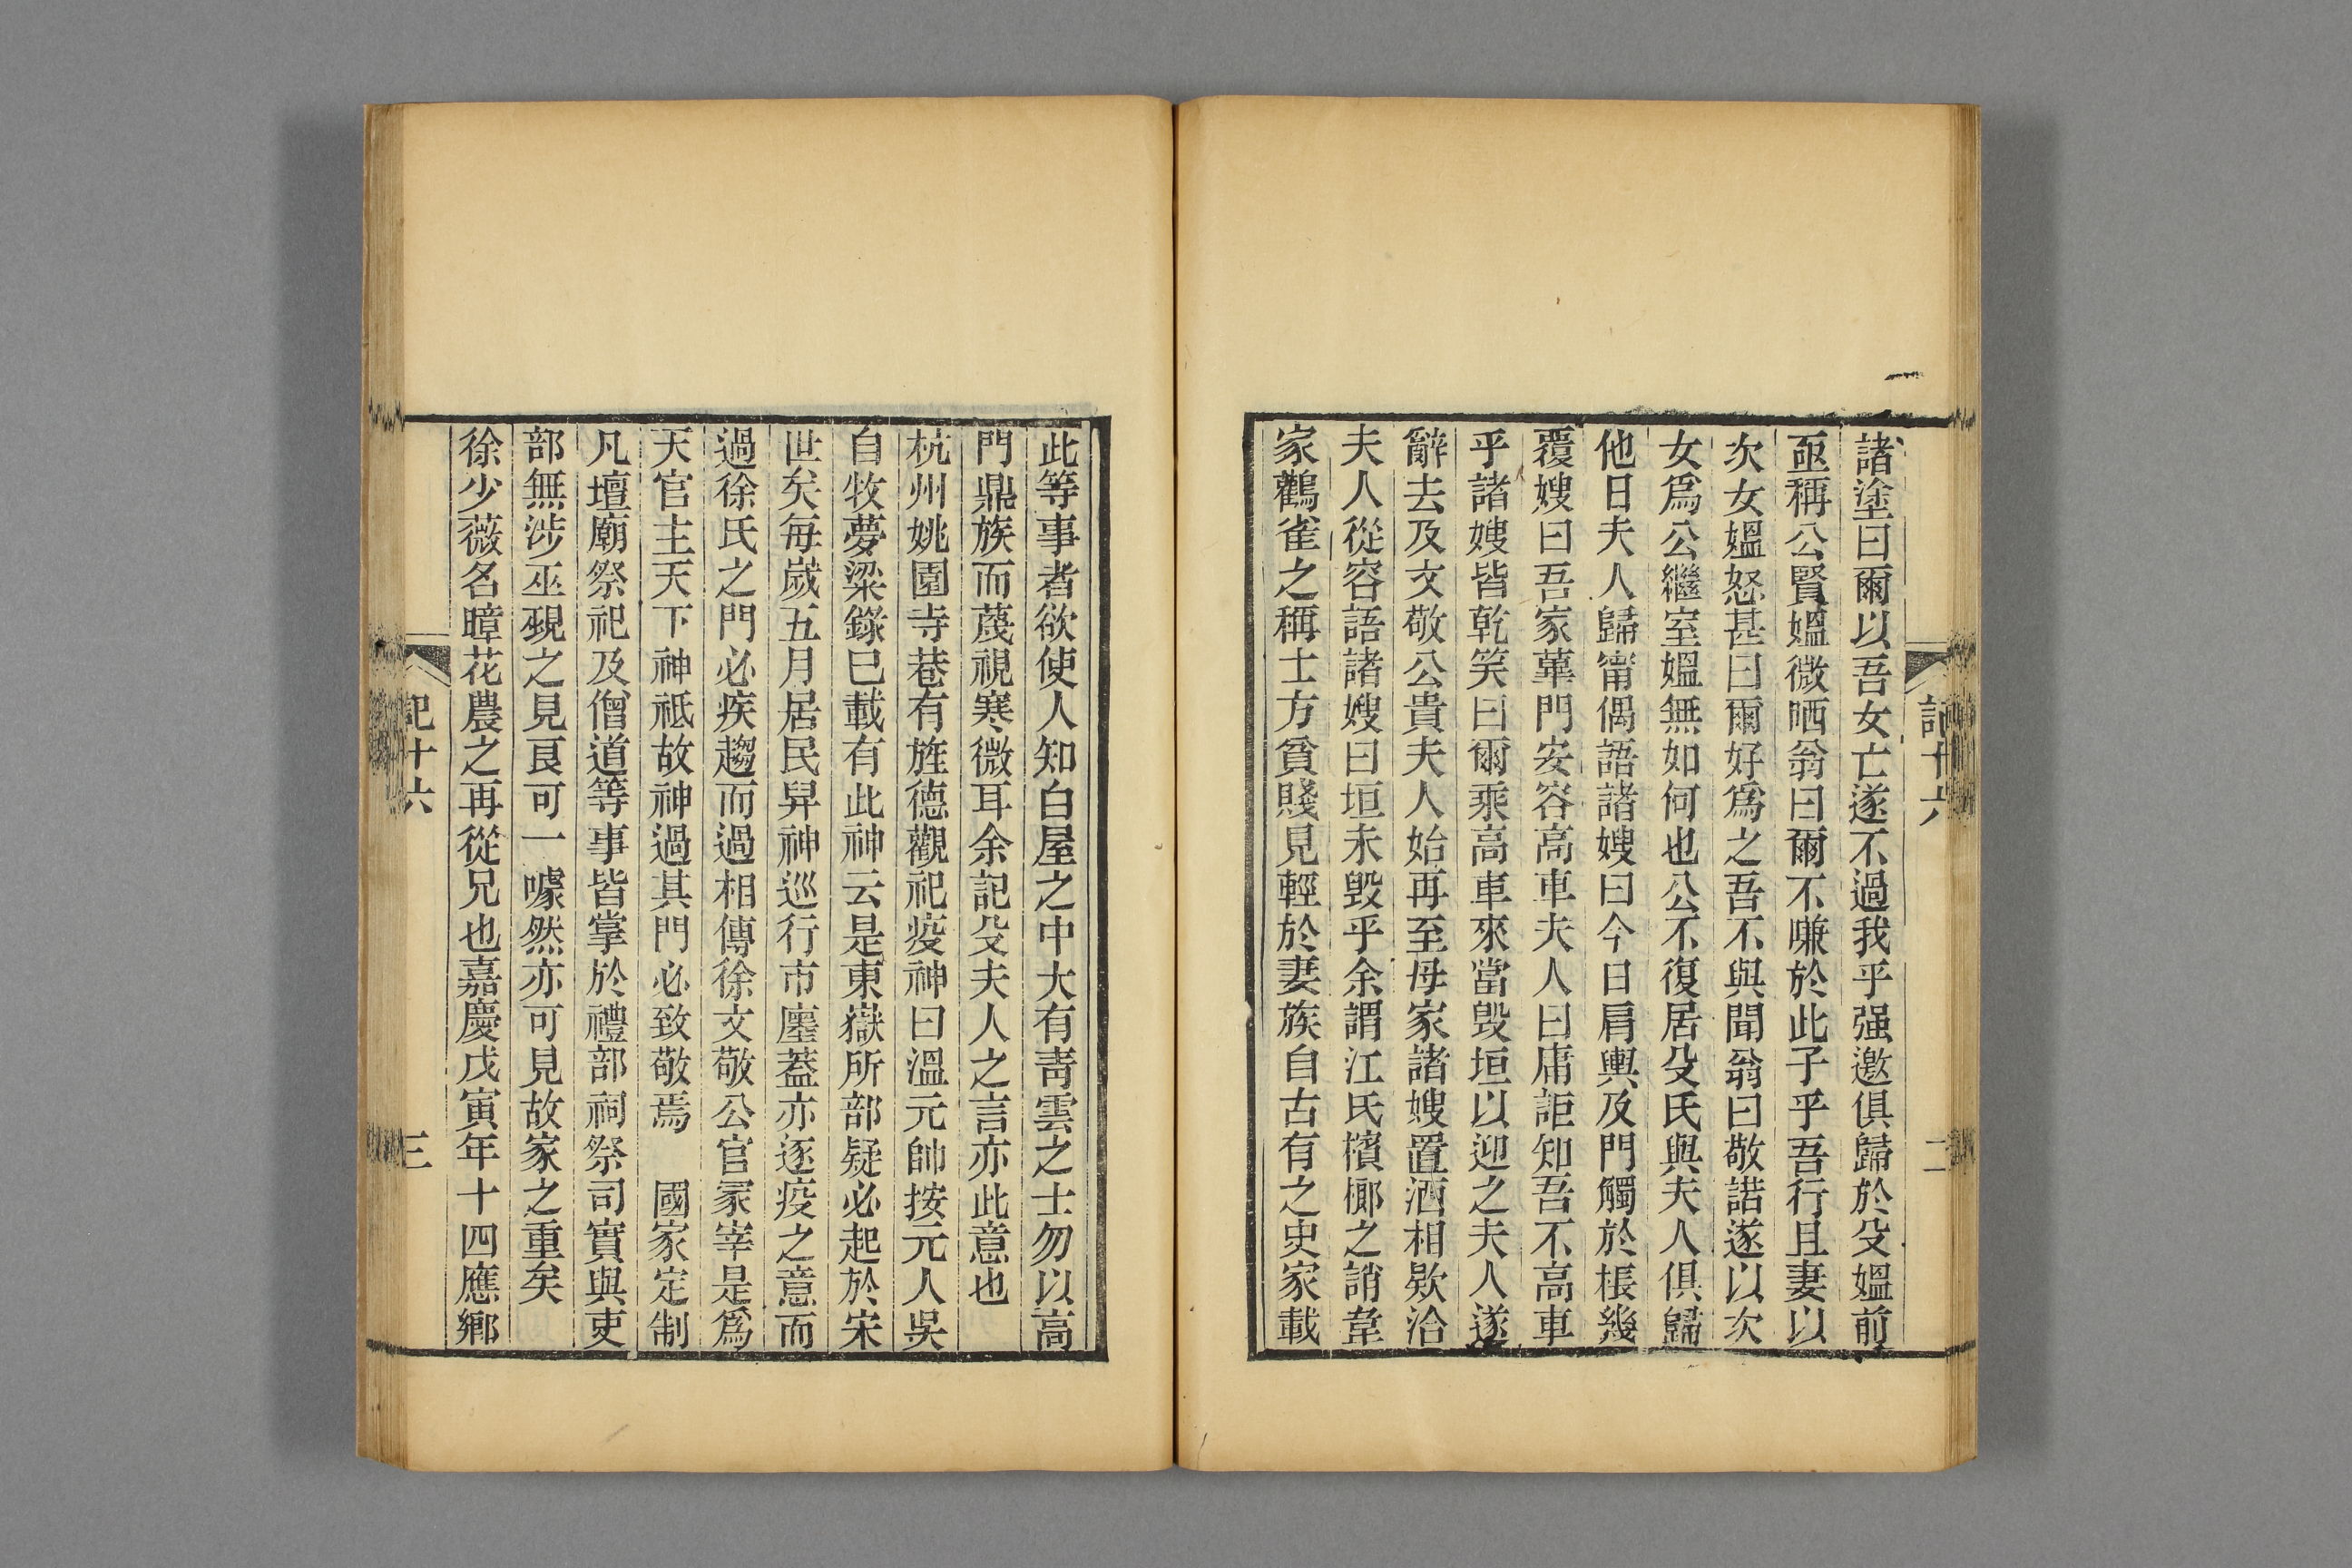 諸塗曰爾以吾女亡遂不過我乎强邀俱歸於殳媼前
亟稱公賢媼微哂翁曰爾不嗛於此子乎吾行且妻以
次女媼怒甚曰爾好爲之吾不與聞翁曰敬諾遂以次
女爲公繼室媼無如何也公不復居殳氏與夫人俱歸
他日夫人歸甯偶語諸嫂曰今日肩輿及門觸於棖幾
覆嫂曰吾家蓽門安容高車夫人曰庸詎知吾不高車
乎諸嫂皆乾笑曰爾乘高車來當毁垣以迎之夫人遂
辭去及文敬公貴夫人始再至母家諸嫂置酒相歡洽
夫人從容語諸嫂曰垣未毁乎余謂江氏檳榔之誚韋
家鸛雀之稱士方貧賤見輕於妻族自古有之史家載
記十六
二
此等事者欲使人知白屋之中大有靑雲之士勿以高
門鼎族而蔑視寒微耳余記殳夫人之言亦此意也
杭州姚園寺巷有旌德觀祀疫神曰溫元帥按元人吳
自牧夢粱錄已載有此神云是東嶽所部疑必起於宋
世矣每歲五月居民舁神巡行市廛蓋亦逐疫之意而
過徐氏之門必疾趨而過相傳徐文敬公官冢宰是爲
天官主天下神祗故神過其門必致敬焉　國家定制
凡壇廟祭祀及僧道等事皆掌於禮部祠祭司實與吏
部無涉巫覡之見良可一噱然亦可見故家之重矣
徐少薇名暲花農之再從兄也嘉慶戊寅年十四應鄕
記十六
三